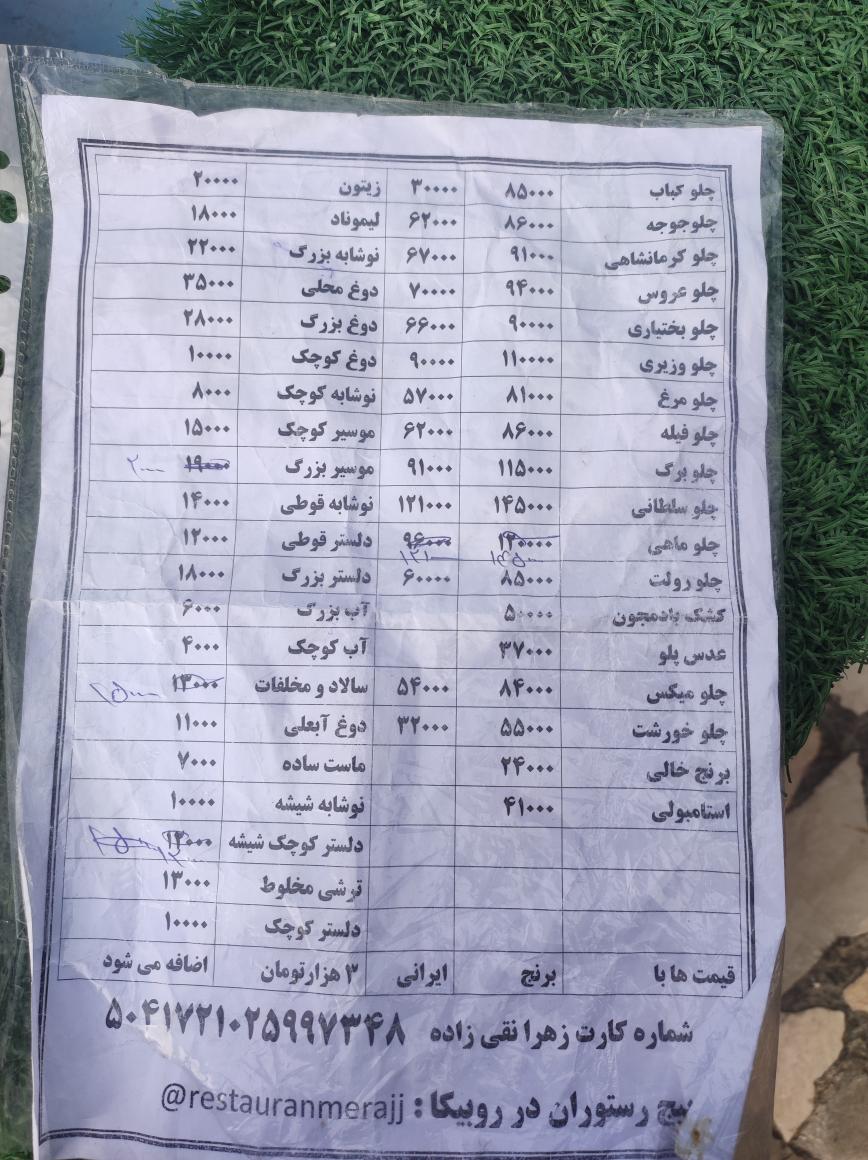 چلو کباب ۸۵۰۰۰ ۳۰۰۰۰ زیتون ۲۰۰۰۰
چلوجوجه ۸۶۰۰۰ ۶۲۰۰۰ لیموناد ۱۸۰۰۰
چلو کرمانشاهی ۹۱۰۰۰ ۶۷۰۰۰ نوشابه بزرگ ۲۲۰۰۰
چلو عروس ۹۴۰۰۰ ۷۰۰۰۰ دوغ محلی ۳۵۰۰۰
چلو بختیاری ۹۰۰۰۰ ۶۶۰۰۰ دوغ بزرگ ۲۸۰۰۰
چلو وزیری ۱۱۰۰۰۰ ۹۰۰۰۰ دوغ کوچک ۱۰۰۰۰
چلو مرغ ۸۱۰۰۰ ۵۷۰۰۰ نوشابه کوچک ۸۰۰۰
چلو فیله ۸۶۰۰۰ ۶۲۰۰۰ موسیر کوچک ۱۵۰۰۰
چلو برگ ۱۱۵۰۰۰ ۹۱۰۰۰ موسیر بزرگ ۱۹۰۰۰
چلو سلطانی ۱۴۵۰۰۰ ۱۲۱۰۰۰ نوشابه قوطی ۱۴۰۰۰
چلو ماهی ۱۲۰۰۰۰ ۹۶۰۰۰ دلستر قوطی ۱۲۰۰۰
چلو رولت ۸۵۰۰۰ ۶۰۰۰۰ دلستر بزرگ ۱۸۰۰۰
کشک بادمجون ۵۰۰۰۰ آب بزرگ ۶۰۰۰
عدس پلو ۳۷۰۰۰ آب کوچک ۴۰۰۰
چلو میکس ۸۴۰۰۰ ۵۴۰۰۰ سالاد و مخلفات ۱۳۰۰۰
چلو خورشت ۵۵۰۰۰ ۳۲۰۰۰ دوغ آبعلی ۱۱۰۰۰
برنج خالی ۲۴۰۰۰ ماست ساده ۷۰۰۰
استامبولی ۴۱۰۰۰ نوشابه شیشه ۱۰۰۰۰
دلستر کوچک شیشه ۱۲۰۰۰
ترشی مخلوط ۱۳۰۰۰
دلستر کوچک ۱۰۰۰۰
قیمت ها با برنج ایرانی ۳ هزارتومان اضافه می شود
شماره کارت زهرا نقی زاده ۵۰۴۱۷۲۱۰۲۵۹۹۷۳۴۸
پیج رستوران در روبیکا : @restauranmerajj